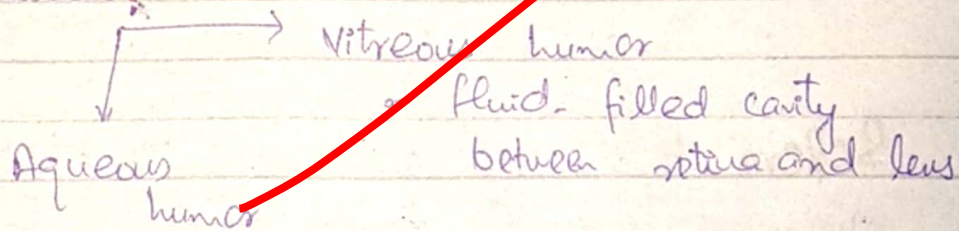 Vitreous humor
fluid- filled cavity
between retina and lens
Aqueous
humor